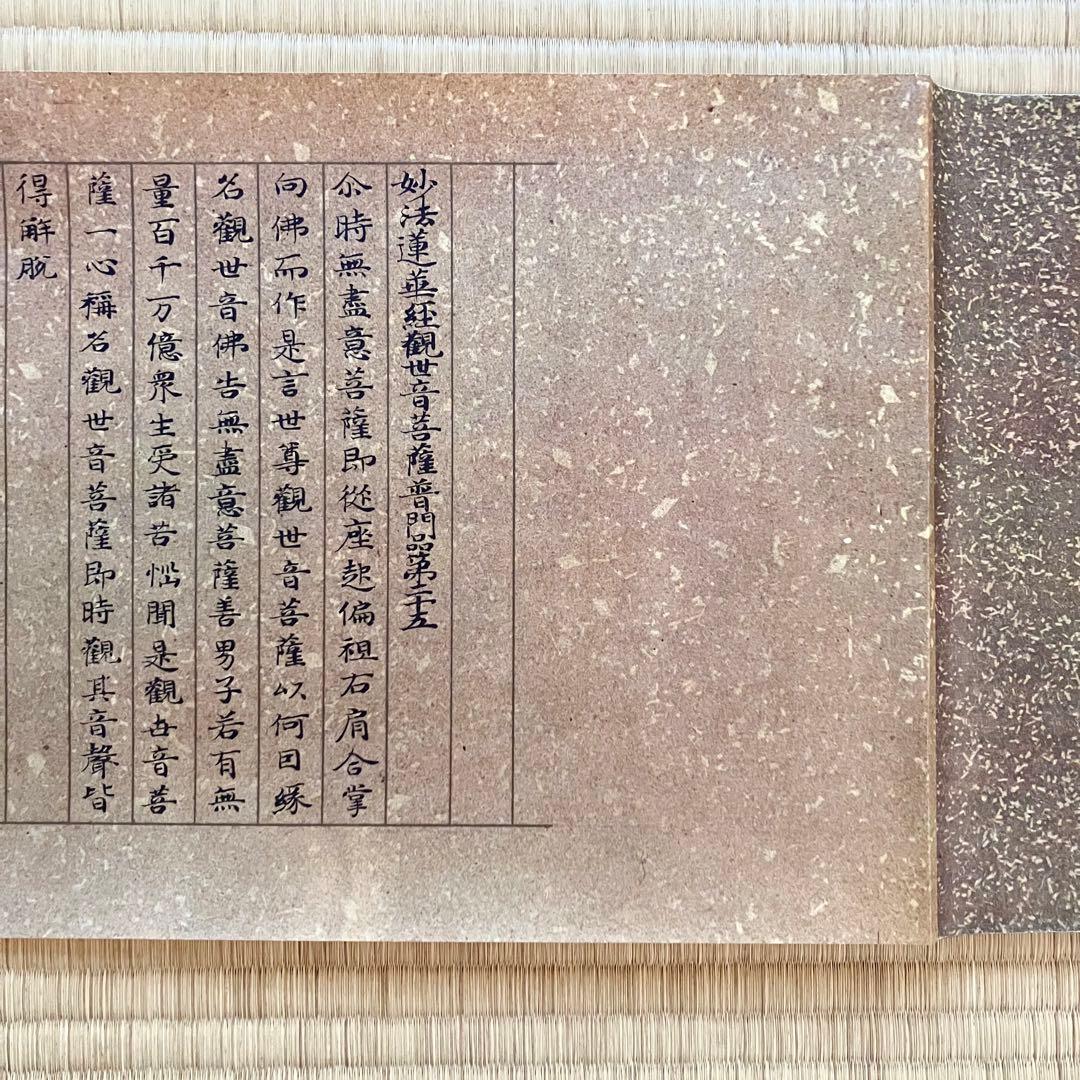 妙法蓮華經觀世音菩薩普門品第二十五
尒時無盡意菩薩即從座起偏袒右肩合掌
向佛而作是言世尊觀世音菩薩以何因緣
名觀世音佛告無盡意菩薩善男子若有無
量百千万億衆生受諸苦惱聞是觀世音菩
薩一心稱名觀世音菩薩即時觀其音聲皆
得解脫